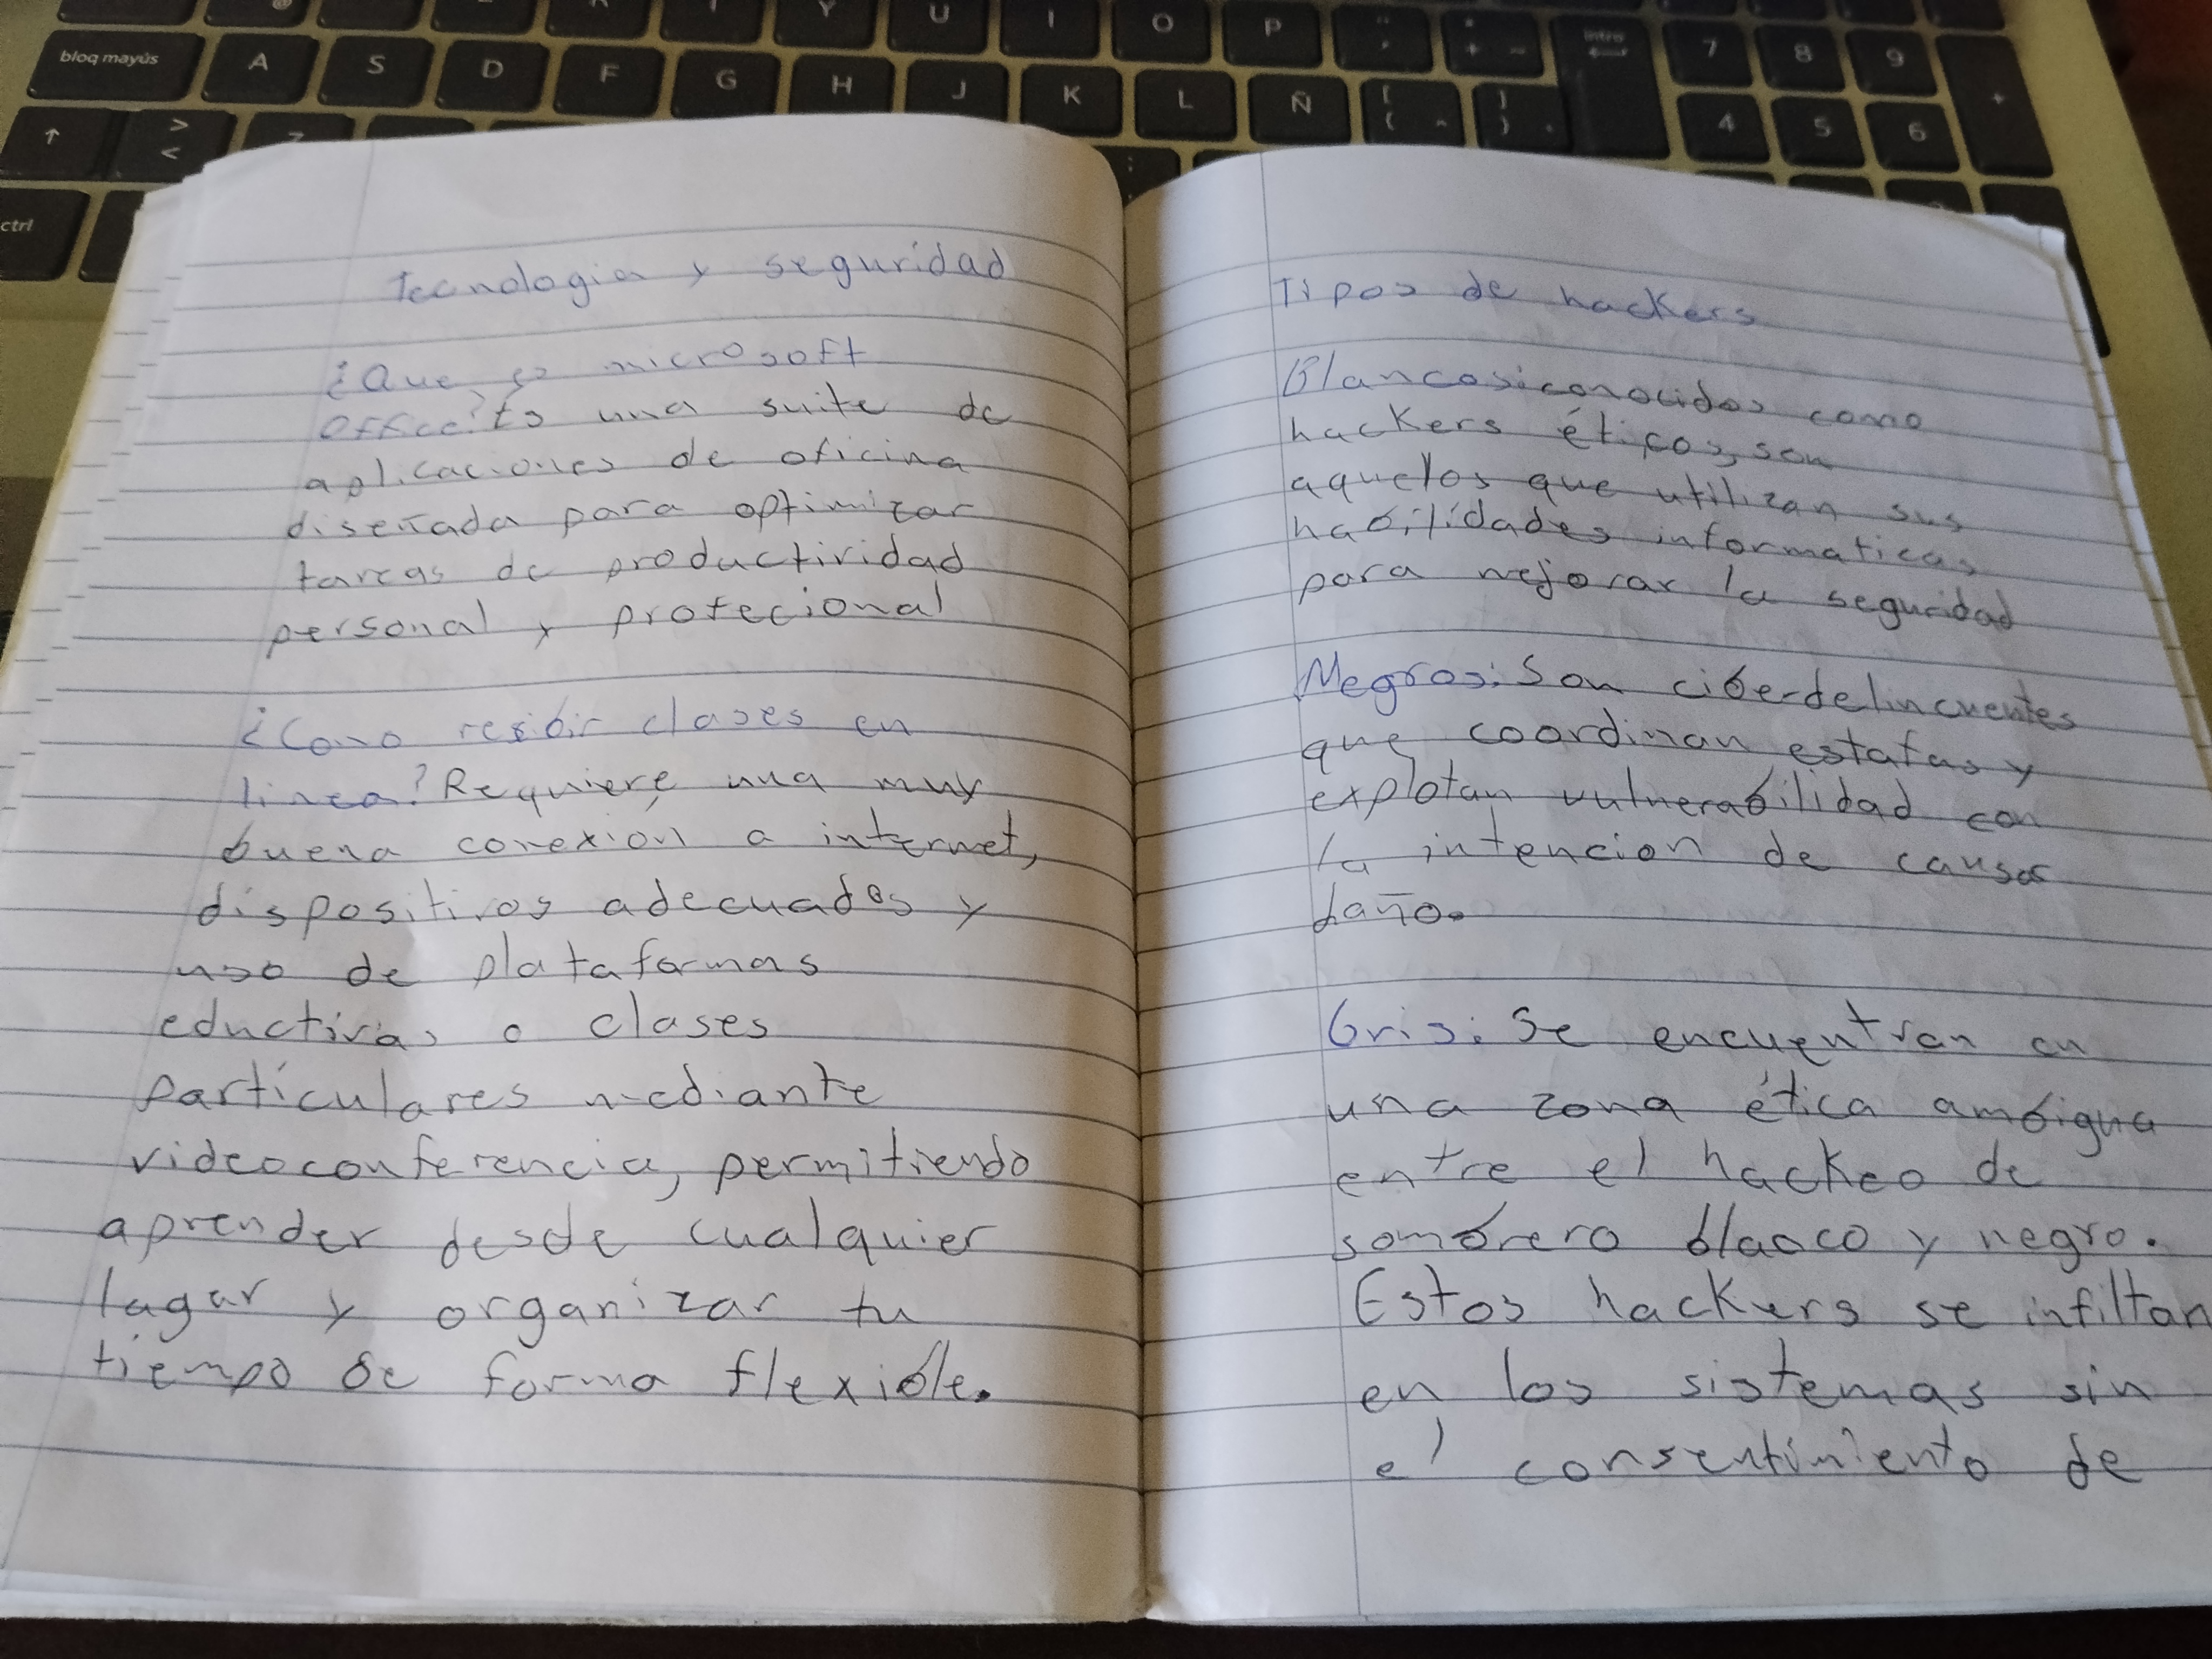 bloq mayús
A S D F G H J K L Ñ
Y U I O P
intro
7 8 9
4 5 6
+
ctrl
Tecnologia y seguridad
¿Que es microsoft
office? Es una suite de
aplicaciones de oficina
diseñada para optimizar
tareas de productividad
personal y profecional
¿Como resibir clases en
linea? Requiere una muy
buena conexión a internet,
dispositivos adecuados y
uso de plataformas
eductivas o clases
particulares mediante
videoconferencia, permitiendo
aprender desde cualquier
lagar y organizar tu
tiempo de forma flexible.
Tipos de hackers
Blancos: conocidos como
hackers éticos, son
aquelos que utilizan sus
habilidades informaticas
para mejorar la seguridad
Negros: Son ciberdelincuentes
que coordinan estafas y
explotan vulnerabilidad con
la intencion de causar
daño.
Gris: Se encuentran en
una zona ética ambigua
entre el hackeo de
sombrero blanco y negro.
Estos hackers se infiltan
en los sistemas sin
el consentimiento de